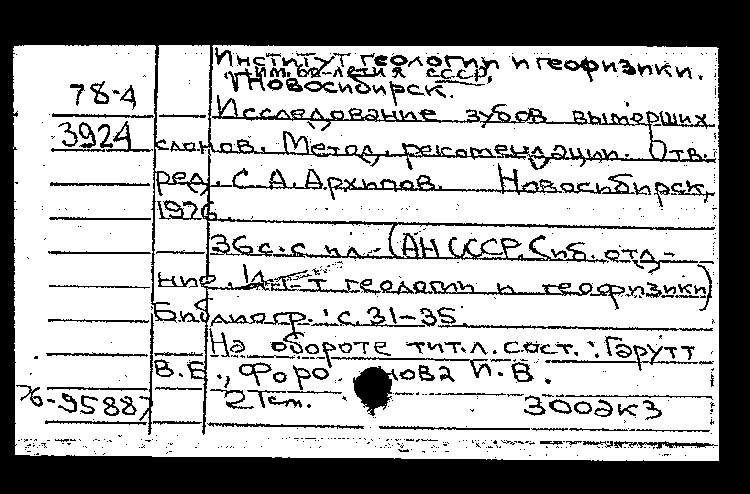 Институт геологии и геофизики.
им. 60-летия СССР,
Новосибирск.
78-4
Исследование зубов вымерших
3924
слонов. Метод. рекомендации. Отв.
ред. С.А. Архипов. Новосибирск,
1976.
36 с. с ил. - (АН СССР. Сиб. отд-
ние. Ин-т геологии и геофизики)
Библиогр.: с. 31-35.
На обороте тит. л. сост.: Гарутт
В.Е., Форо нова И.В.
76-95887
2 Тcт. 300экз